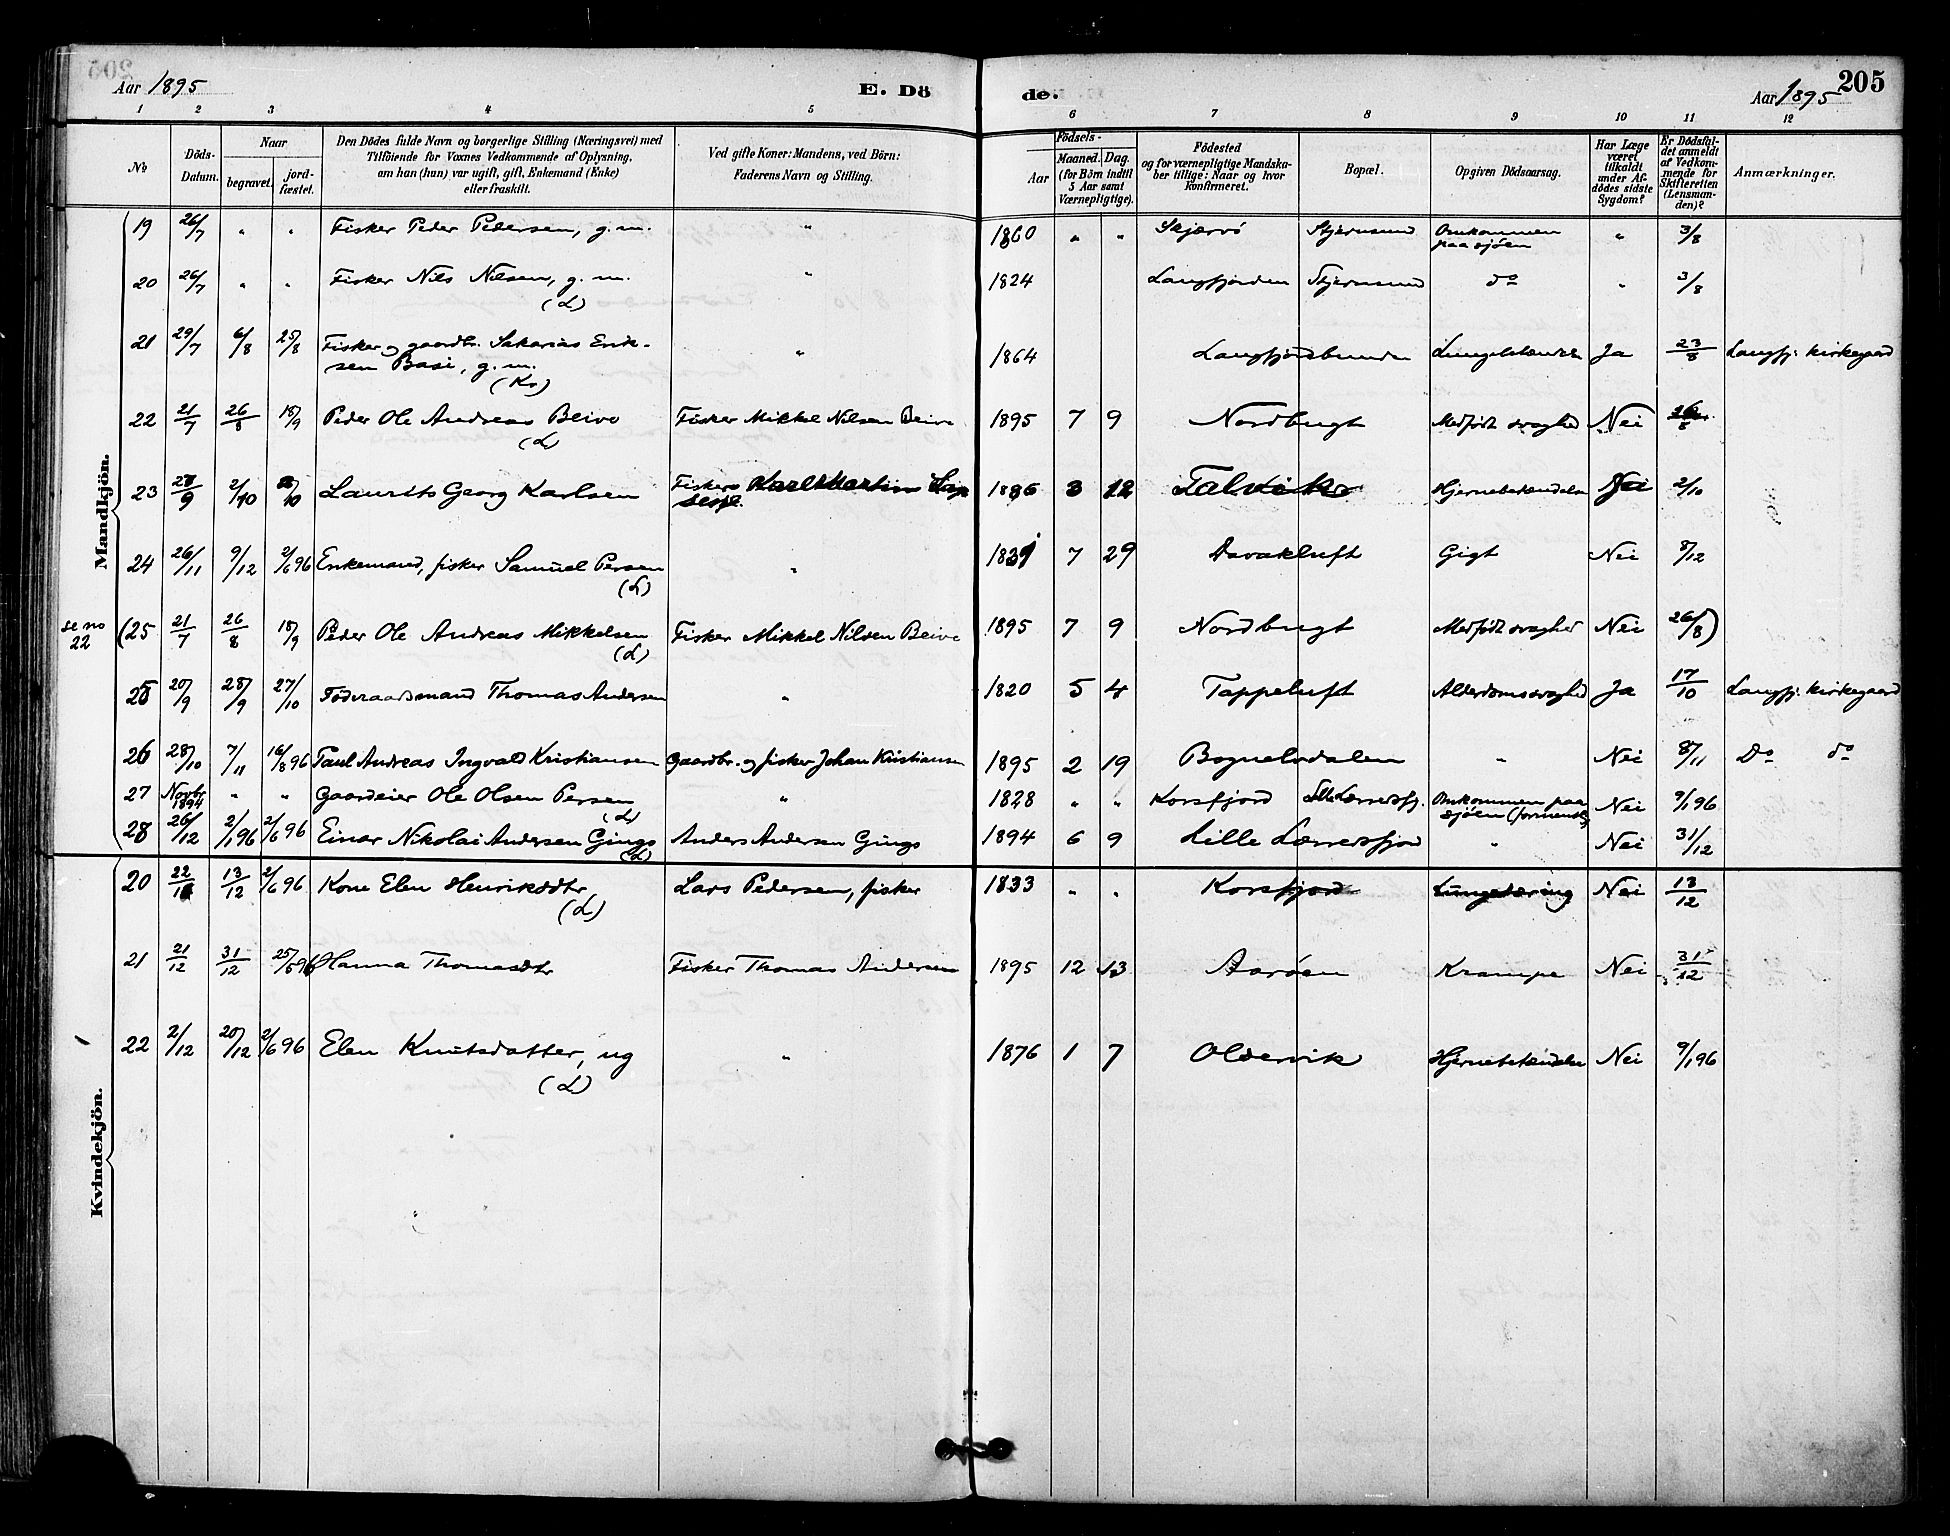 Aar 1895
E. Dö
de.
Aar 1895
205
1 2 3 4 5 6 7 8 9 10 11 12
No
Döds-
Datum.
Naar
begravet.
jord-
fæstet.
Den Dödes fulde Navn og borgerlige Stilling (Næringsvei) med
Tilföiende for Voxnes Vedkommende af Oplysning,
om han (hun) var ugift, gift, Enkemand (Enke)
eller fraskilt.
Ved gifte Koner: Mandens, ved Börn:
Faderens Navn og Stilling.
Födsels-
Aar
Maaned. Dag.
(for Börn indtil
5 Aar samt
Værnepligtige).
Födested
og for værnepligtige Mandska-
ber tillige: Naar og hvor
konfirmeret.
Bopæl.
Opgiven Dödsaarsag.
Har Læge
været
tilkaldt
under Af-
dödes sidste
Sygdom?
Er Dödsfal-
det anmeldt
af Vedkom-
mende for
Skifteretten
(Lensman-
den)?
Anmærkninger.
Mandkjön.
19 26/7 " " Fisker Peder Pedersen, g.m. " 1860 " " Skjærvö Stjernsund Omkommen " 3/8
paa sjöen
20 26/7 " " Fisker Nils Nilsen, g.m. " 1824 Langfjorden Stjernsund do " 3/8
(L)
21 29/7 6/8 25/8 Fisker og gaardbr. Sakarias Erik- " 1864 Langfjordbunden Ja 23/8 Langfj. kirkegaard
sen Basi, g.m.
(Kv)
22 21/7 26/8 18/9 Peder Ole Andreas Beivo Fisker Mikkel Nilsen Beivo 1895 7 9 Nordbugt Medfödt svaghed Nei 26/8
(L)
23 2/10 Laurits Georg Karlsen Fisker Karl Martin 3 12 Talvik Hjernebetændelse 2/10
24 26/11 9/12 2/6 96 Enkemand, fisker Samuel Persen " 7 29 Davakluft Gigt Nei 8/12
(L)
se no
22
(25 21/7 26/8 18/9 Peder Ole Andreas Mikkelsen Fisker Mikkel Nilsen Beivo 1895 7 9 Nordbugt Medfödt svaghed Nei 26/8)
(L)
25 20/9 28/9 27/10 Föderaadsmand Thomas Andersen " 1820 5 4 Tappeluft Alderdomssvaghed Ja 17/10 Langfj. kirkegaard
26 28/10 7/11 16/8 96 Paul Andreas Ingvald Kristiansen Gaardbr. og fisker Johan Kristiansen 1895 2 19 Bognelvdalen " Nei 8/11 Do do
27 Novbr 1894 " " Gaardeier Ole Olsen Persen " 1828 " " Korsfjord Lille Lerresfj. Omkommen paa Nei 9/1 96
(L) sjöen (formentl.)
28 26/12 2/1 96 2/6 96 Einar Nikolai Andersen Gings Anders Andersen Gings 1894 6 9 Lille Lerresfjord " Nei 31/12
(L)
Kvindekjön.
20 13/12 2/6 96 Kone Elen Henriksdtr Lars Pedersen, fisker 1833 " " Korsfjord Lungetæring Nei 13/12
(L)
21 21/12 31/12 25/5 96 Hanna Thomasdtr Fisker Thomas Andersen 1895 12 13 Aaröen Krampe Nei 31/12
22 2/12 20/12 2/6 96 Elen Knutsdatter, ug " 1876 1 7 Oldervik Hjernebetændelse Nei 9/1 96
(L)